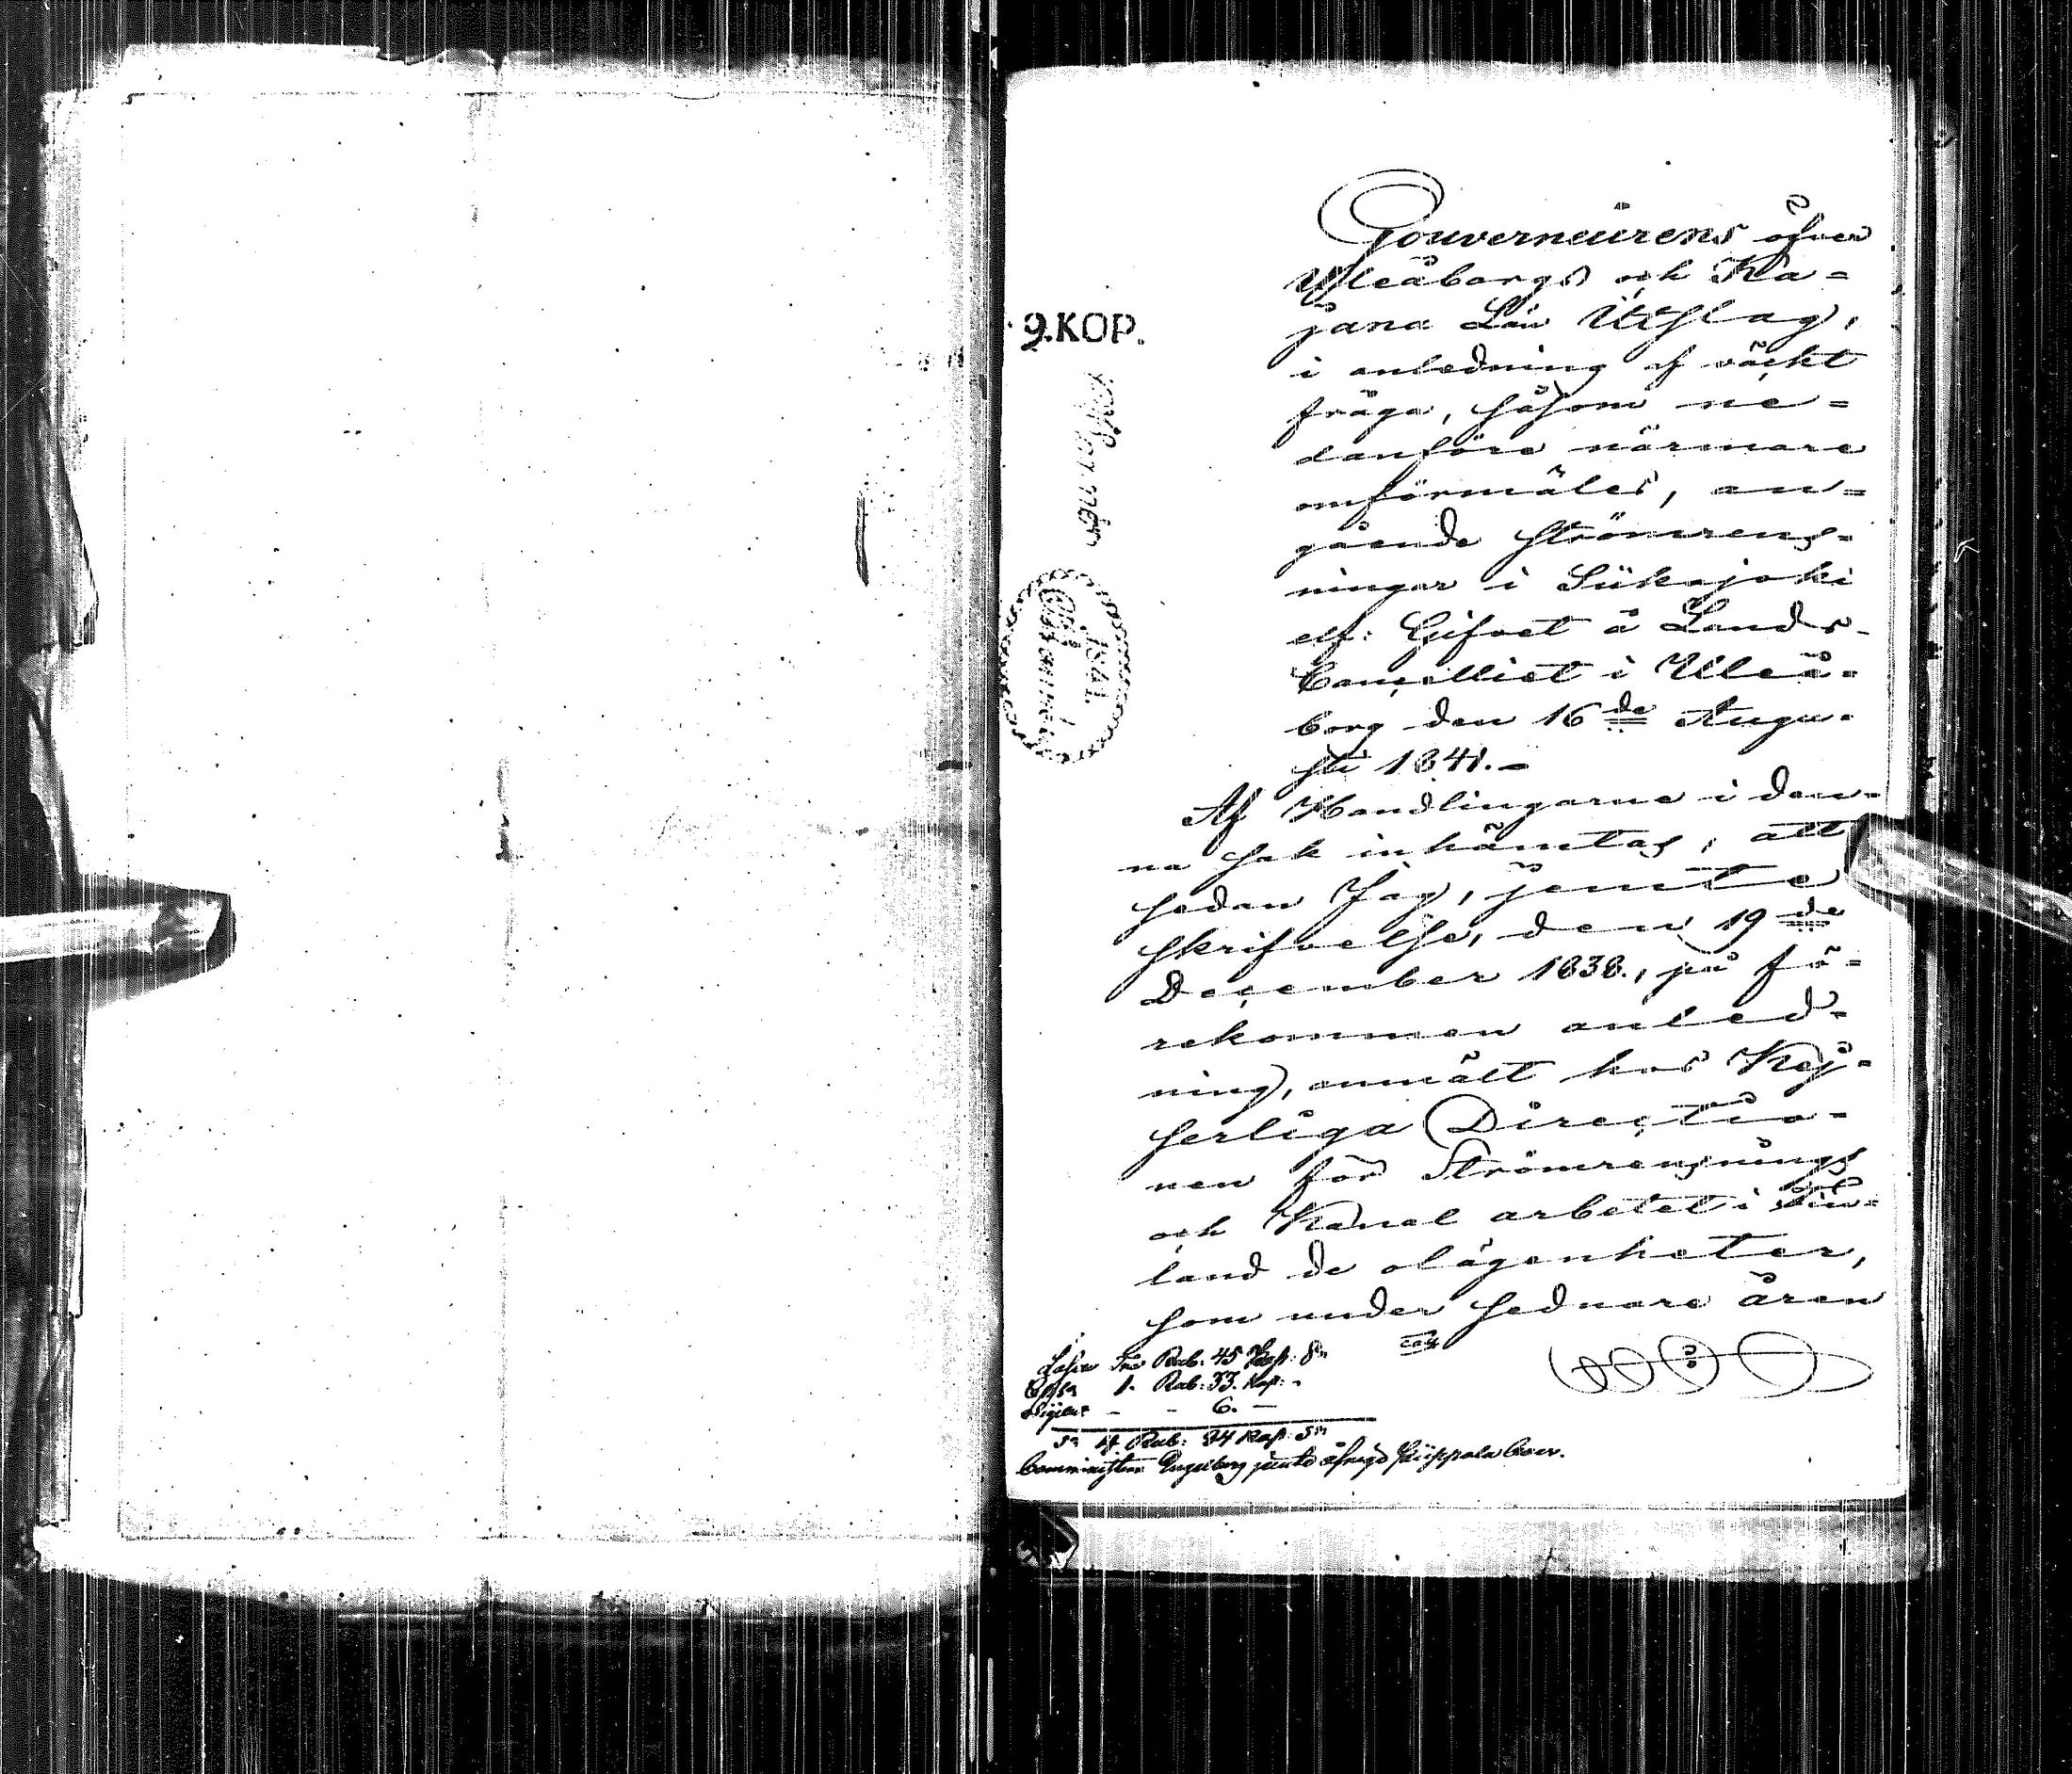 Gouverneurens öfver
Uleåborgs och Ka=
jana Län Utslag,
i anledning af väckt
fråga, såsom ne=
danföre närmare
omförmäles, an=
gående strömrens=
ningar i Siikajoki
elf: Gifvet å Lands-
Cancelliet i Uleå=
borg den 16de Augu=
sti 1841.-
9.KOP.
1841.
Af Handlingarne i den=
na sak inhämtas, att
sedan Jag, jemte
skrifvelse, den 19de
December 1838., på fö=
rekommen anled=
ning, anmält hos Kej=
serliga Directio=
nen för Strömrensnings
och Kanal arbetet i Fin=
land de olägenheter,
som under sednare åren
Lösen Tre Rub. 45 Kop: Sr
1. Rub: 33. Kop: -
- - 6. -
Sa 4 Rub: 84 Kop: Sr
Comministern Engelberg jemte Küppola boer.